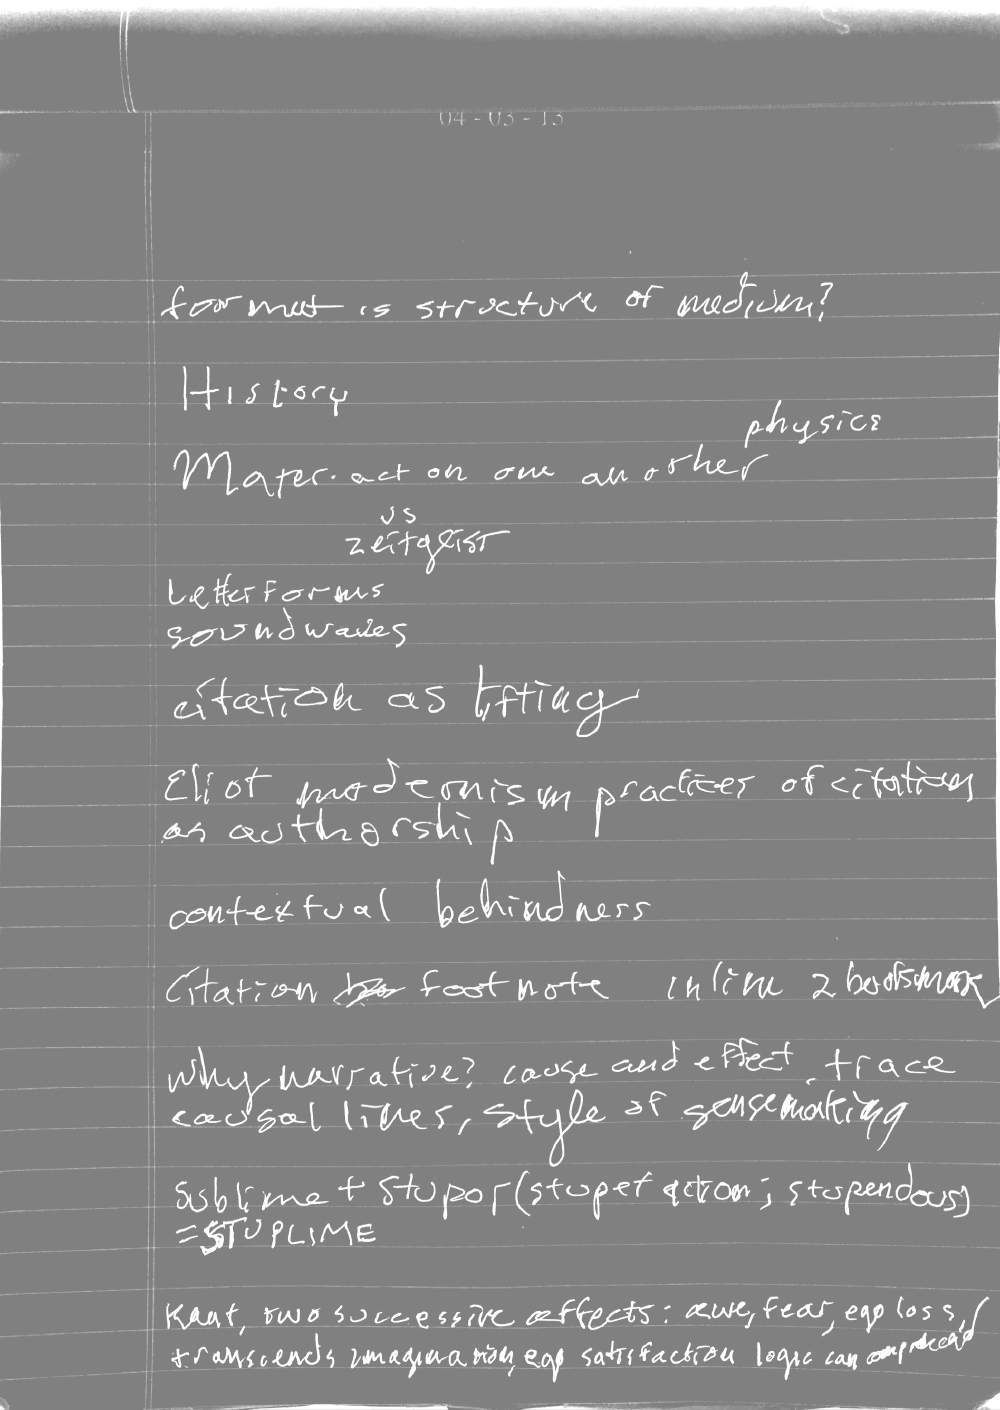 04-03-13
format is structure of medium?
History
physics
Mater. act on one another
vs
zeitgeist
Letterforms
soundwaves
citation as lifting
Eliot modernism practices of citation
as authorship
contextual behindness
Citation footnote inline 2 bookmark
Why narrative? cause and effect, trace
causal lines, style of sensemaking
Sublime + Stupor (stupefaction; stupendous)
=STUPLIME
Kant, two successive affects: awe, fear, ego loss,
transcends imagination, ego satisfaction logic can